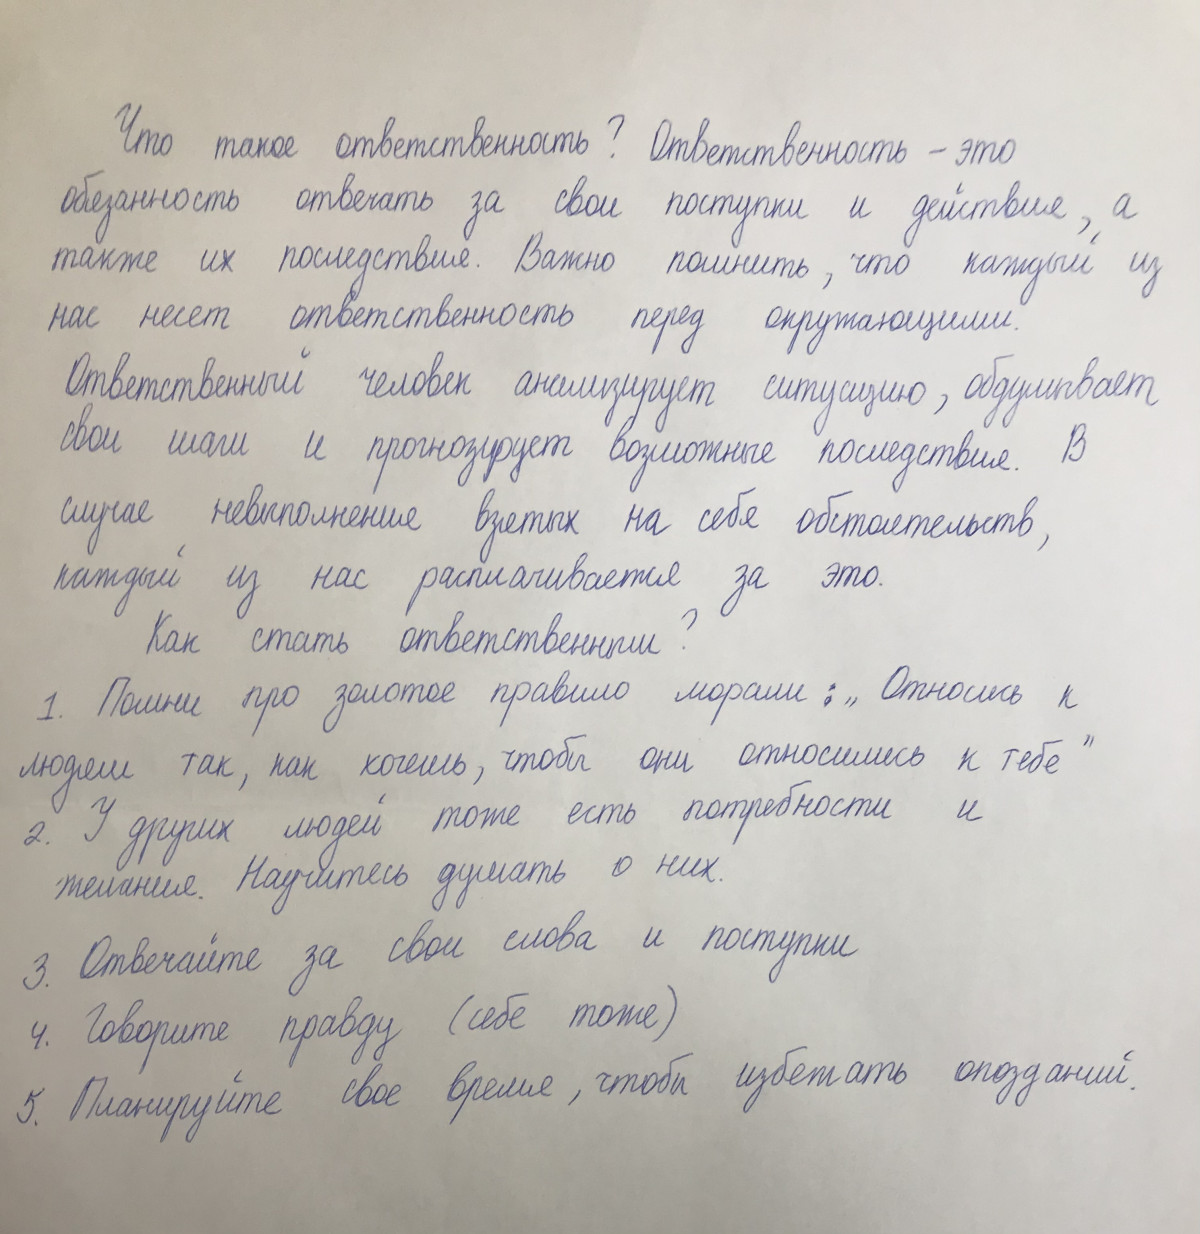 Что такое ответственность? Ответственность – это
обязанность отвечать за свои поступки и действия, а
также их последствия. Важно помнить, что каждый из
нас несет ответственность перед окружающими.
Ответственный человек анализирует ситуацию, обдумывает
свои шаги и прогнозирует возможные последствия. В
случае невыполнения взятых на себя обстоятельств,
каждый из нас расплачивается за это.
Как стать ответственным?
1. Помни про золотое правило морали: „Относись к
людям так, как хочешь, чтобы они относились к тебе"
2. У других людей тоже есть потребности и
желания. Научитесь думать о них.
3. Отвечайте за свои слова и поступки
4. Говорите правду (себе тоже)
5. Планируйте свое время, чтобы избежать опозданий.